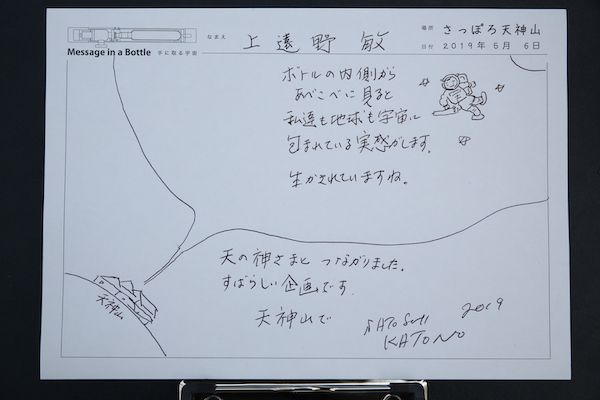 Message in a Bottle 手に取る宇宙
なまえ 上遠野 敏
場所 さっぽろ天神山
日付 2019年5月6日
ボトルの内側から
あべこべに見ると
私達も地球も宇宙に
包まれている実感がします。
生かされていますね。
天の神さまと つながりました。
すばらしい企画です
天神山で
天神山
2019
KATONO